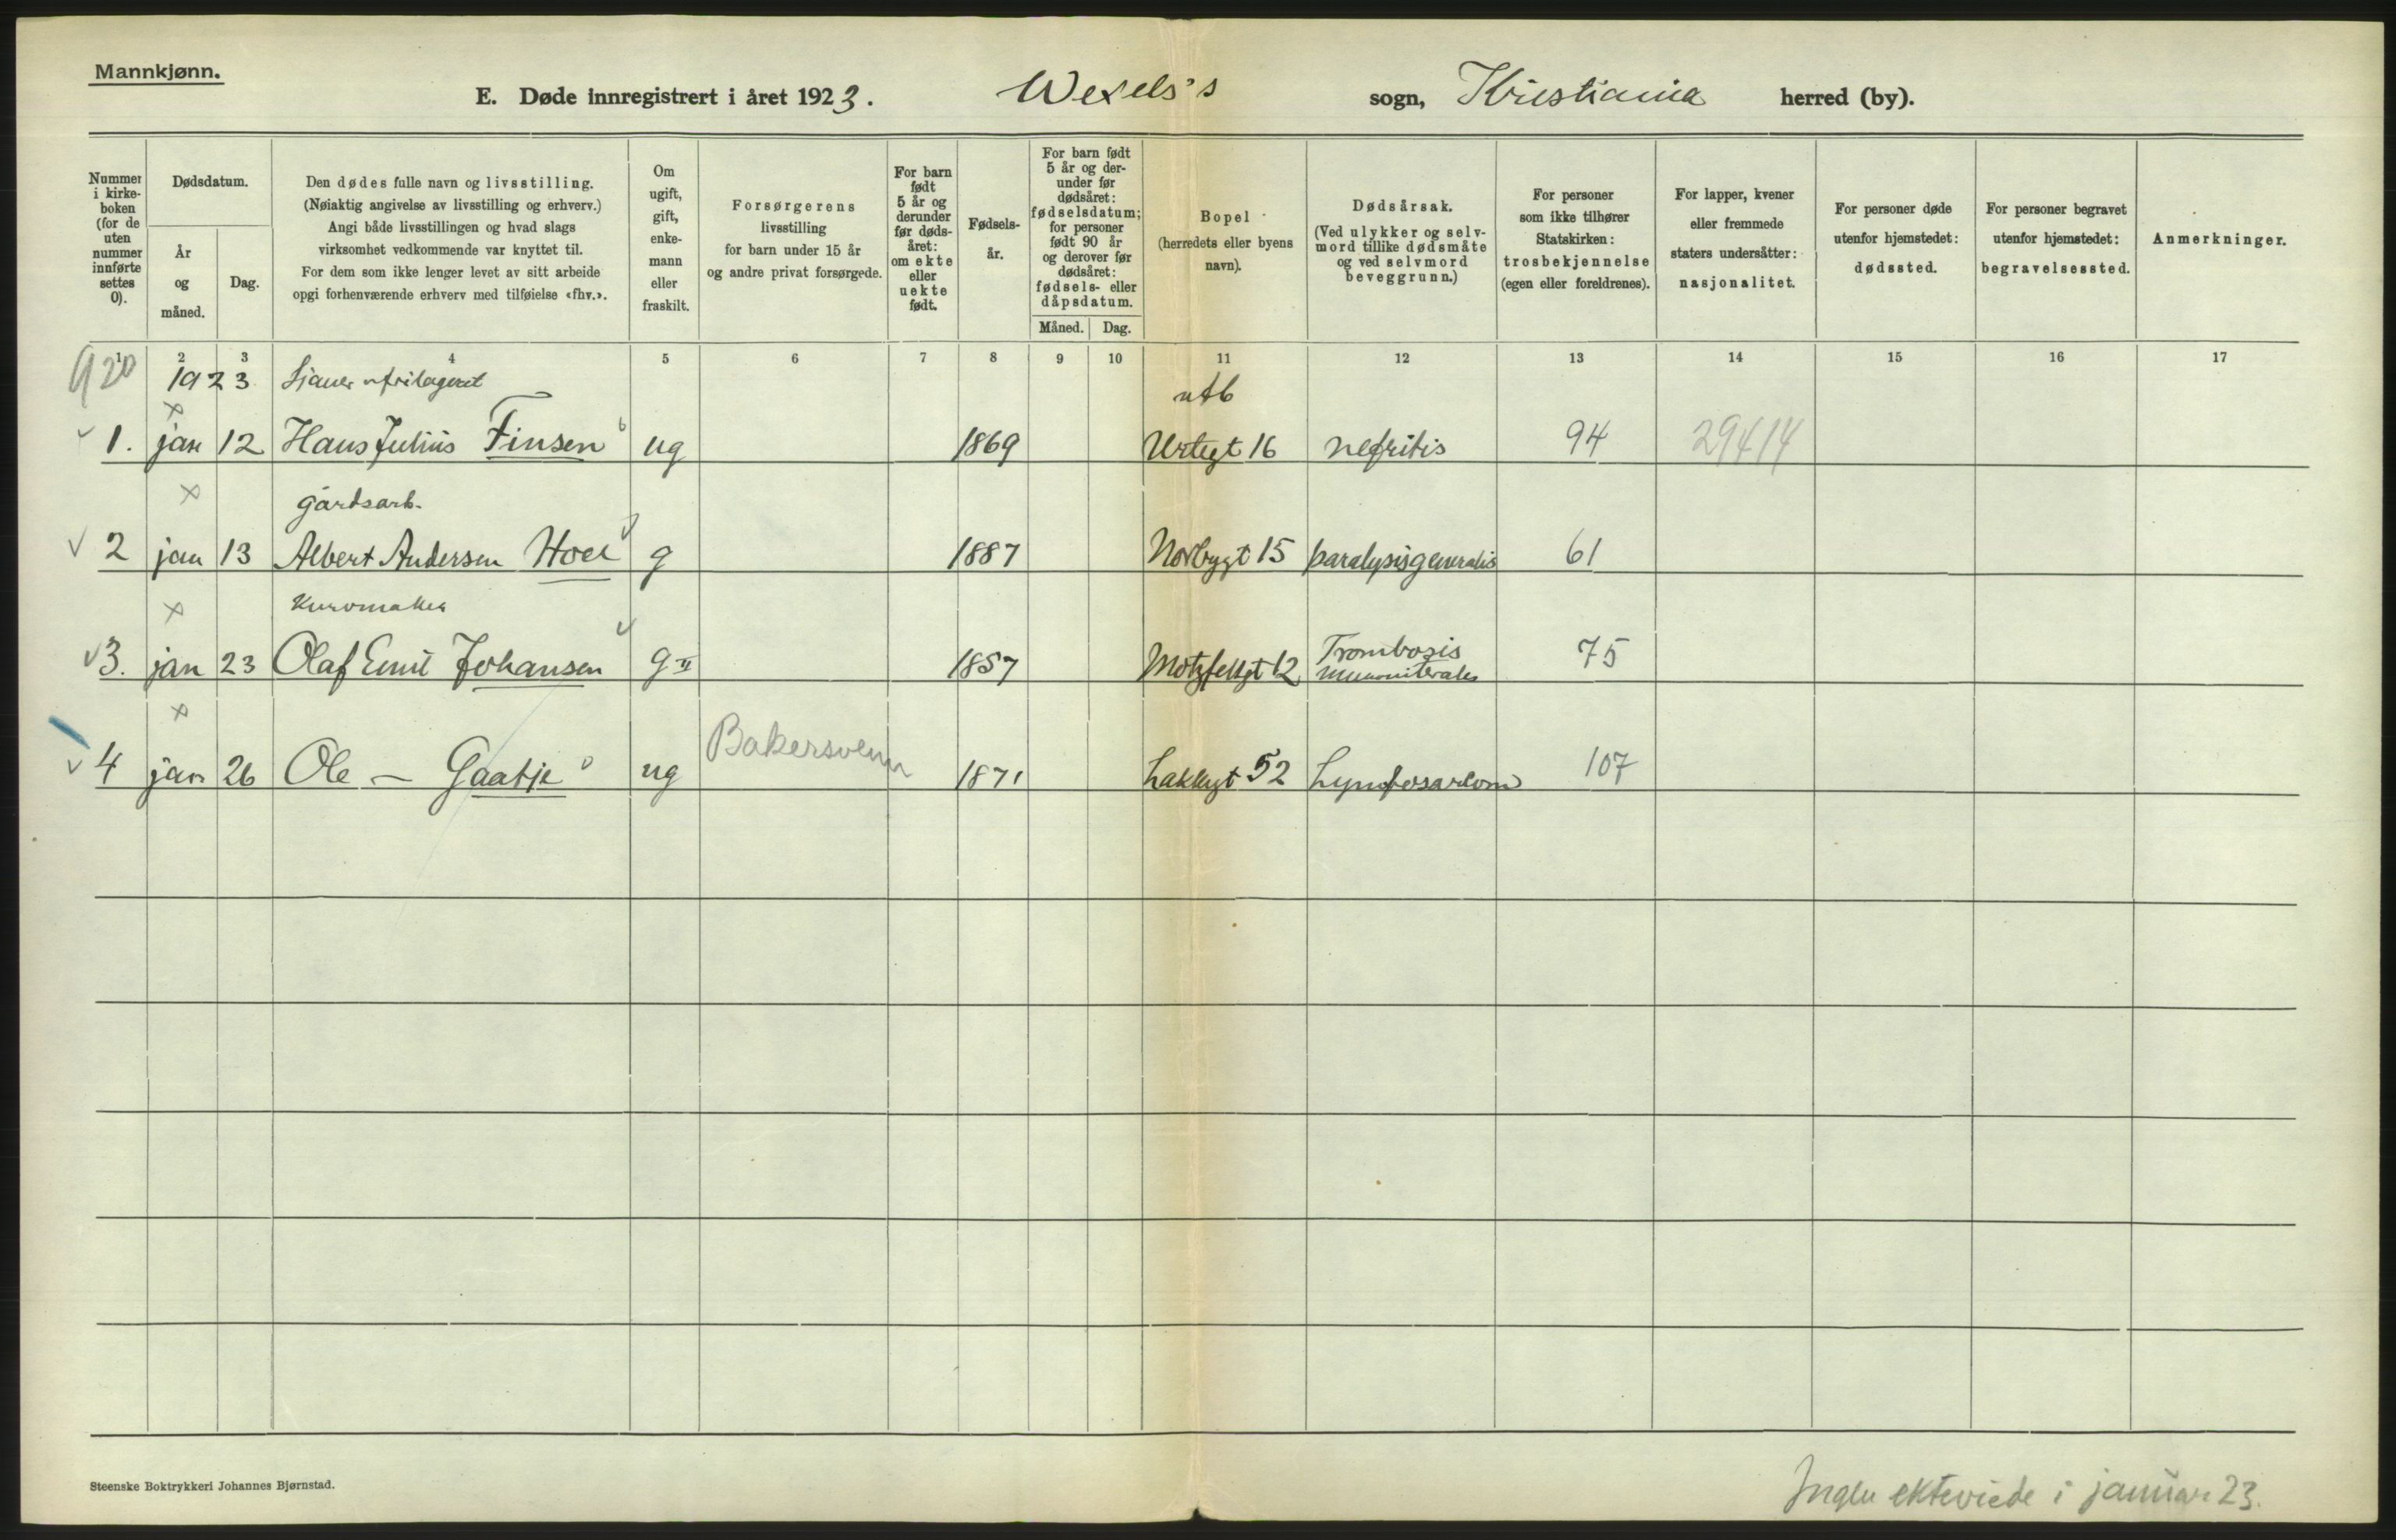 Mannkjønn.
E. Døde innregistrert i året 1923. Wexels's sogn, Kristiania herred (by).
Nummer
i kirke-
boken
(for de
uten
nummer
innførte
settes
0).
Dødsdatum.
År
og
måned.
Dag.
Den dødes fulle navn og livsstilling.
(Nøiaktig angivelse av livsstilling og erhverv.)
Angi både livsstillingen og hvad slags
virksomhet vedkommende var knyttet til.
For dem som ikke lenger levet av sitt arbeide
opgi forhenværende erhverv med tilføielse «fhv.».
Om
ugift,
gift,
enke-
mann
eller
fraskilt.
Forsørgerens
livsstilling
for barn under 15 år
og andre privat forsørgede.
For barn
født
5 år og
derunder
før døds-
året:
om ekte
eller
uekte
født.
Fødsels-
år.
For barn født
5 år og der-
under før
dødsåret:
fødselsdatum;
for personer
født 90 år
og derover før
dødsåret:
fødsels- eller
dåpsdatum.
Måned. Dag.
Bopel
(herredets eller byens
navn).
Dødsårsak.
(Ved ulykker og selv-
mord tillike dødsmåte
og ved selvmord
beveggrunn.)
For personer
som ikke tilhører
Statskirken:
trosbekjennelse
(egen eller foreldrenes).
For lapper, kvener
eller fremmede
staters undersåtter:
nasjonalitet.
For personer døde
utenfor hjemstedet:
dødssted.
For personer begravet
utenfor hjemstedet:
begravelsessted.
Anmerkninger.
1 2 3 4 5 6 7 8 9 10 11 12 13 14 15 16 17
920 1923 Sjauer
1. jan 12 Hans Julius Finsen ug 1869 Urtegt 16 nefritis 94 29414
gårdsarb.
2 jan 13 Albert Andersen Hoel g 1887 Norbygt 15 paralysis generalis 61
Kurvmaker
3. jan 23 Olaf Emil Johansen g II 1857 Motzfeldtgt 12 Trombosis 75
4 jan 26 Ole — Gaatje ug Bakersvenn 1871 Lakkegt 52 Lymfosarkom 107
Steenske Boktrykkeri Johannes Bjørnstad.
Ingen ekteviede i januar 23.